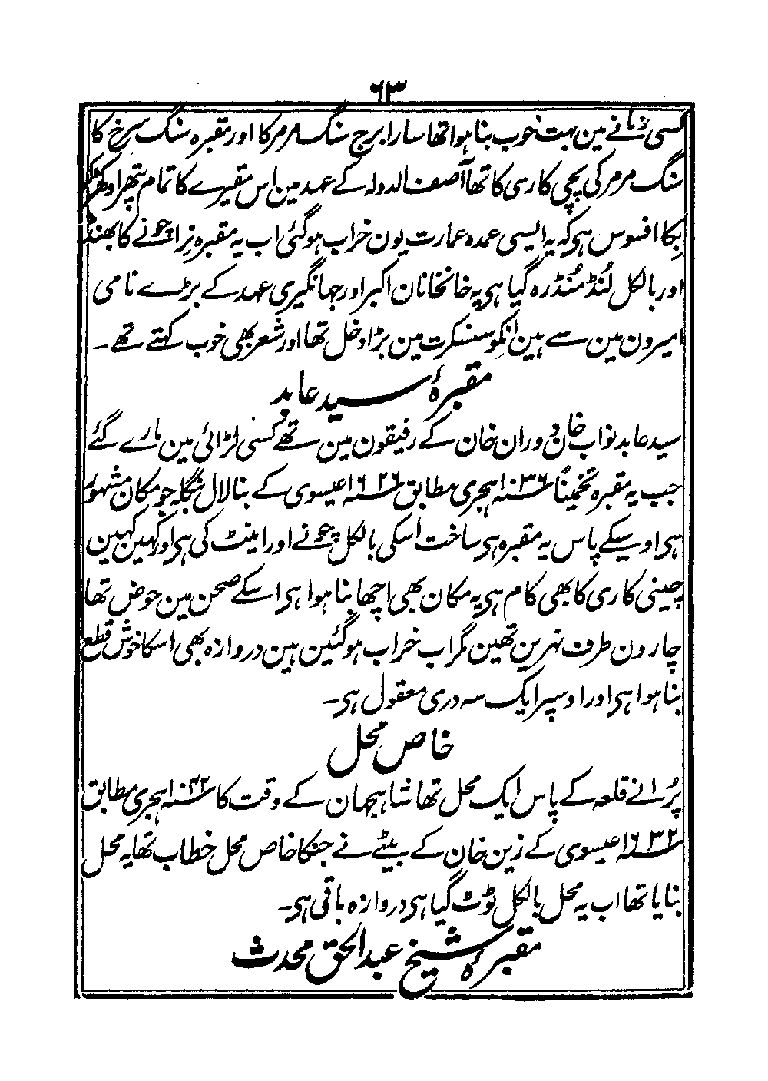 ۶۳
کسی زمانے مین بہت خوب بنا ہوا تھا سارا برج سنگ مرمر کا اور مقبرہ سنگ سرخ کا
سنگ مرمر کی پچی کاری کا تھا آصف الدولہ کے عہد مین اس مقبرے کا تمام پتھر اوکھڑ
بکا افسوس ہی کہ یہ ایسی عمدہ عمارت یون خراب ہو گئی اب یہ مقبرہ نرا چونے کا بھنڈ
اور بالکل لُنڈ مُنڈ رہ گیا ہی یہ خانخانان اکبر اور جہانگیری عہد کے بڑے نامی
امیرون مین سے ہین انکو سنسکرت مین بڑا دخل تھا اور شعر بھی خوب کہتے تھے ۔
مقبرۂ سید عابد
سید عابد نواب خان دوران خان کے رفیقون مین تھے کسی لڑائی مین مارے گئے
جب یہ مقبرہ تخمیناً ۱۰۳۶ ہجری مطابق ۱۶۲۶ عیسوی کے بنا لال بنگلہ جو مکان مشہور
ہی اوسیکے پاس یہ مقبرہ ہی ساخت اسکی بالکل چونے اور اینٹ کی ہی اور کہین کہین
چینی کاری کا بھی کام ہی یہ مکان بھی اچھا بنا ہوا ہی اسکے صحن مین حوض تھا
چارون طرف نہرین تھین مگر اب خراب ہو گئین ہین دروازہ بھی اسکا خوش قطع
بنا ہوا ہی اور اوسپر ایک سہ دری معقول ہی ۔
خاص محل
پُرانے قلعہ کے پاس ایک محل تھا شاہجہان کے وقت کا ۱۰۴۲ ہجری مطابق
۱۶۳۲ عیسوی کے زین خان کے بیٹے نے جنکا خاص محل خطاب تھا یہ محل
بنایا تھا اب یہ محل بالکل ٹوٹ گیا ہی دروازہ باقی ہی ۔
مقبرۂ شیخ عبد الحق محدث